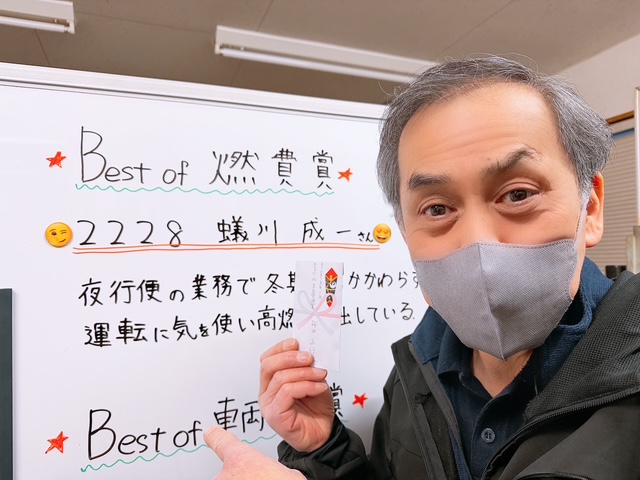 Best of 燃費賞
2228 蟻川 成一さん
夜行便の業務で冬 かかわらず
運転に気を使い高燃 出している
Best of 車両 賞